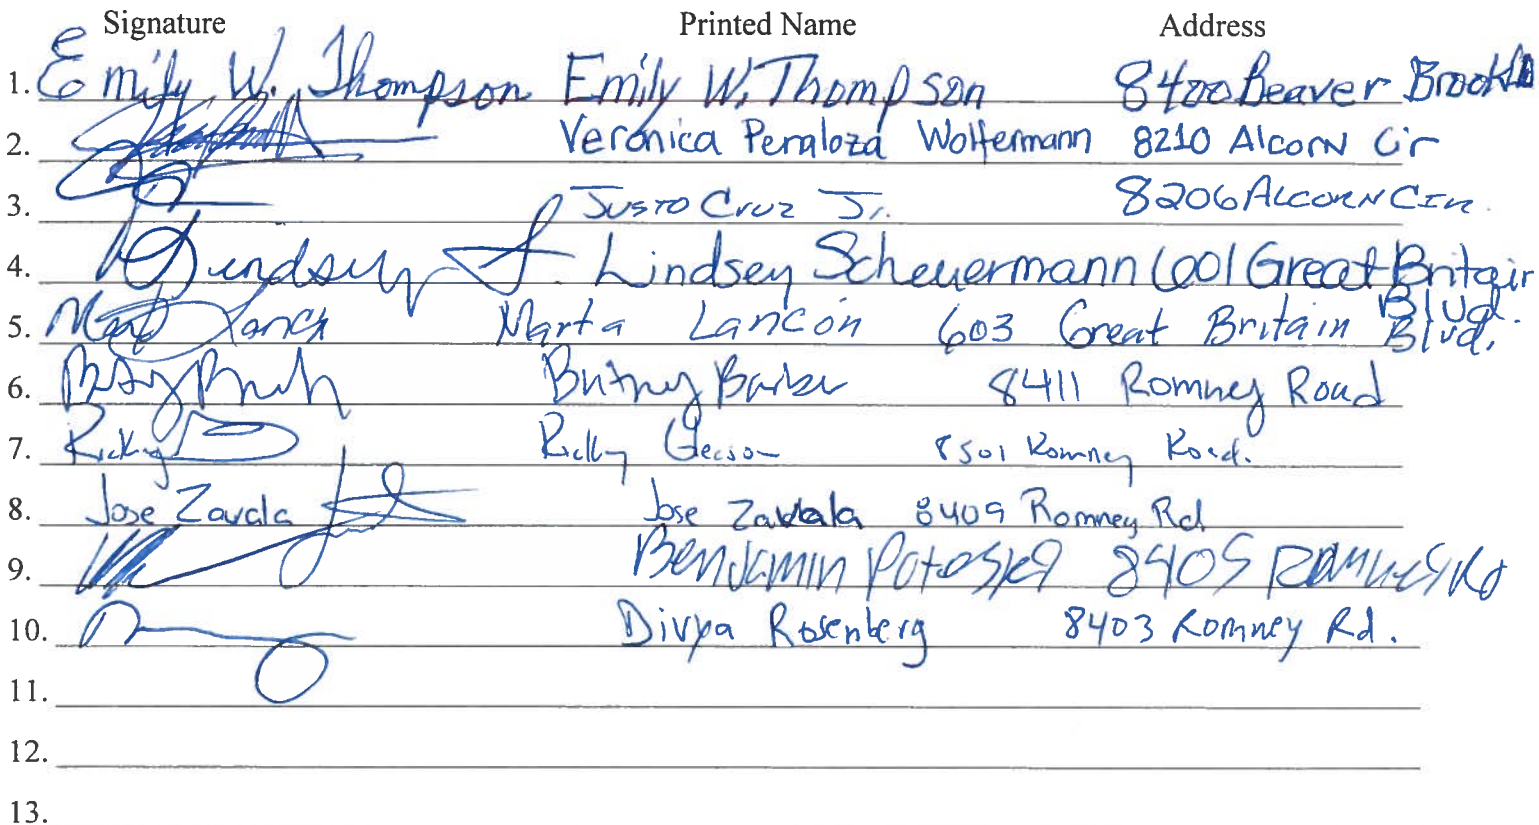 Signature Printed Name Address
1. Emily W. Thompson Emily W. Thompson 8400 Beaver Brook
2. Veronica Penaloza Woltermann 8210 Alcorn Cir
3. Justo Cruz Jr. 8206 Alcorn Cir.
4. Lindsey Lindsey Scheuermann 601 Great Britain Blvd.
5. Marta Lancon 603 Great Britain Blvd.
6. Britney Barber 8411 Romney Road
7. Ricky Ricky 8501 Romney Road.
8. Jose Zavala Jose Zavala 8409 Romney Rd
9. Benjamin Potoski 8405 Romney Rd
10. Divya Rosenberg 8403 Romney Rd.
11.
12.
13.